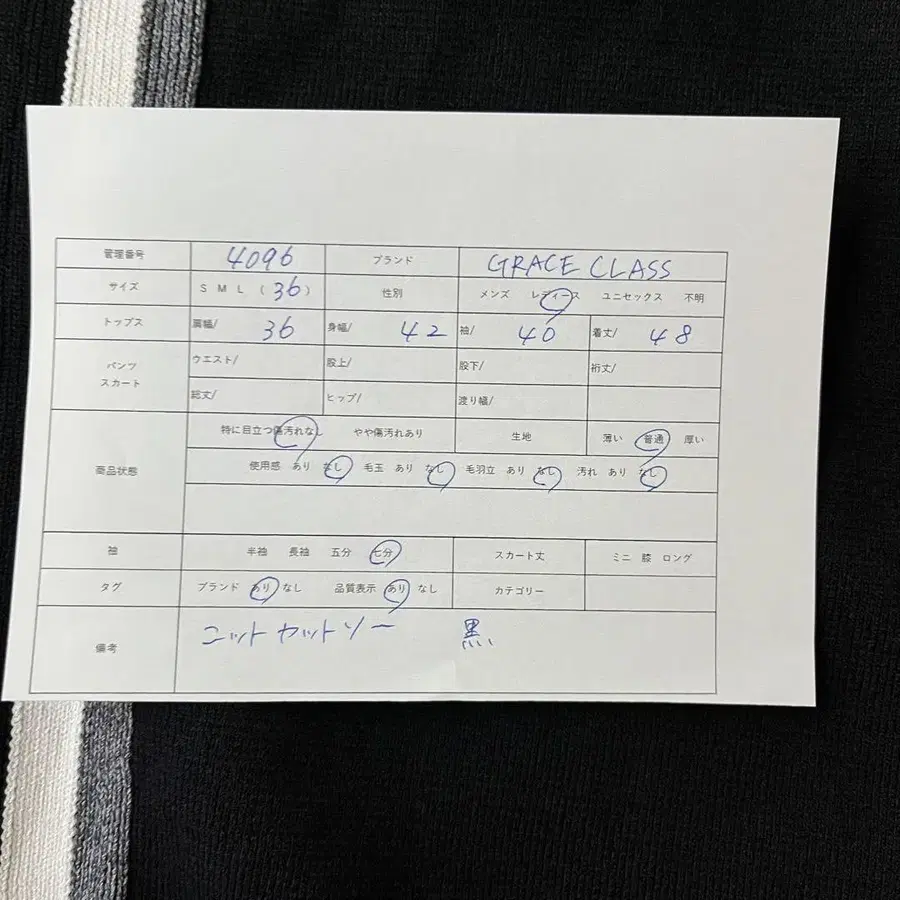 管理番号 4096 ブランド GRACE CLASS
サイズ S M L (36) 性別 メンズ レディース ユニセックス 不明
トップス 肩幅/ 36 身幅/ 42 袖/ 40 着丈/ 48
パンツ スカート ウエスト/ 股上/ 股下/ 裄丈/
総丈/ ヒップ/ 渡り幅/
商品状態 特に目立つ傷汚れなし やや傷汚れあり 生地 薄い 普通 厚い
使用感 あり なし 毛玉 あり なし 毛羽立 あり なし 汚れ あり なし
袖 半袖 長袖 五分 七分 スカート丈 ミニ 膝 ロング
タグ ブランド あり なし 品質表示 あり なし カテゴリー
備考 ニットカットソー 黒